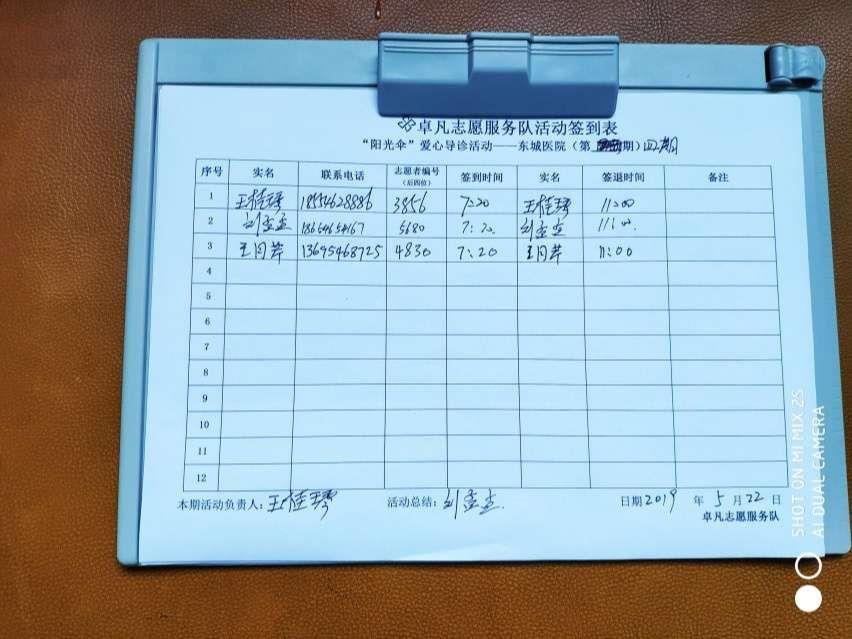 卓凡志愿服务队活动签到表
“阳光伞”爱心导诊活动——东城医院（第 期）四期
序号 实名 联系电话 志愿者编号（后四位） 签到时间 实名 签退时间 备注
1 王桂琴 18554628886 3856 7:20 王桂琴 11:00
2 刘孟孟 18654654167 5680 7:20 刘孟孟 11:00
3 王月芹 13695468725 4830 7:20 王月芹 11:00
4
5
6
7
8
9
10
11
12
本期活动负责人：王桂琴 活动总结：刘孟孟 日期2019年5月22日
卓凡志愿服务队
SHOT ON MI MIX 2S
AI DUAL CAMERA